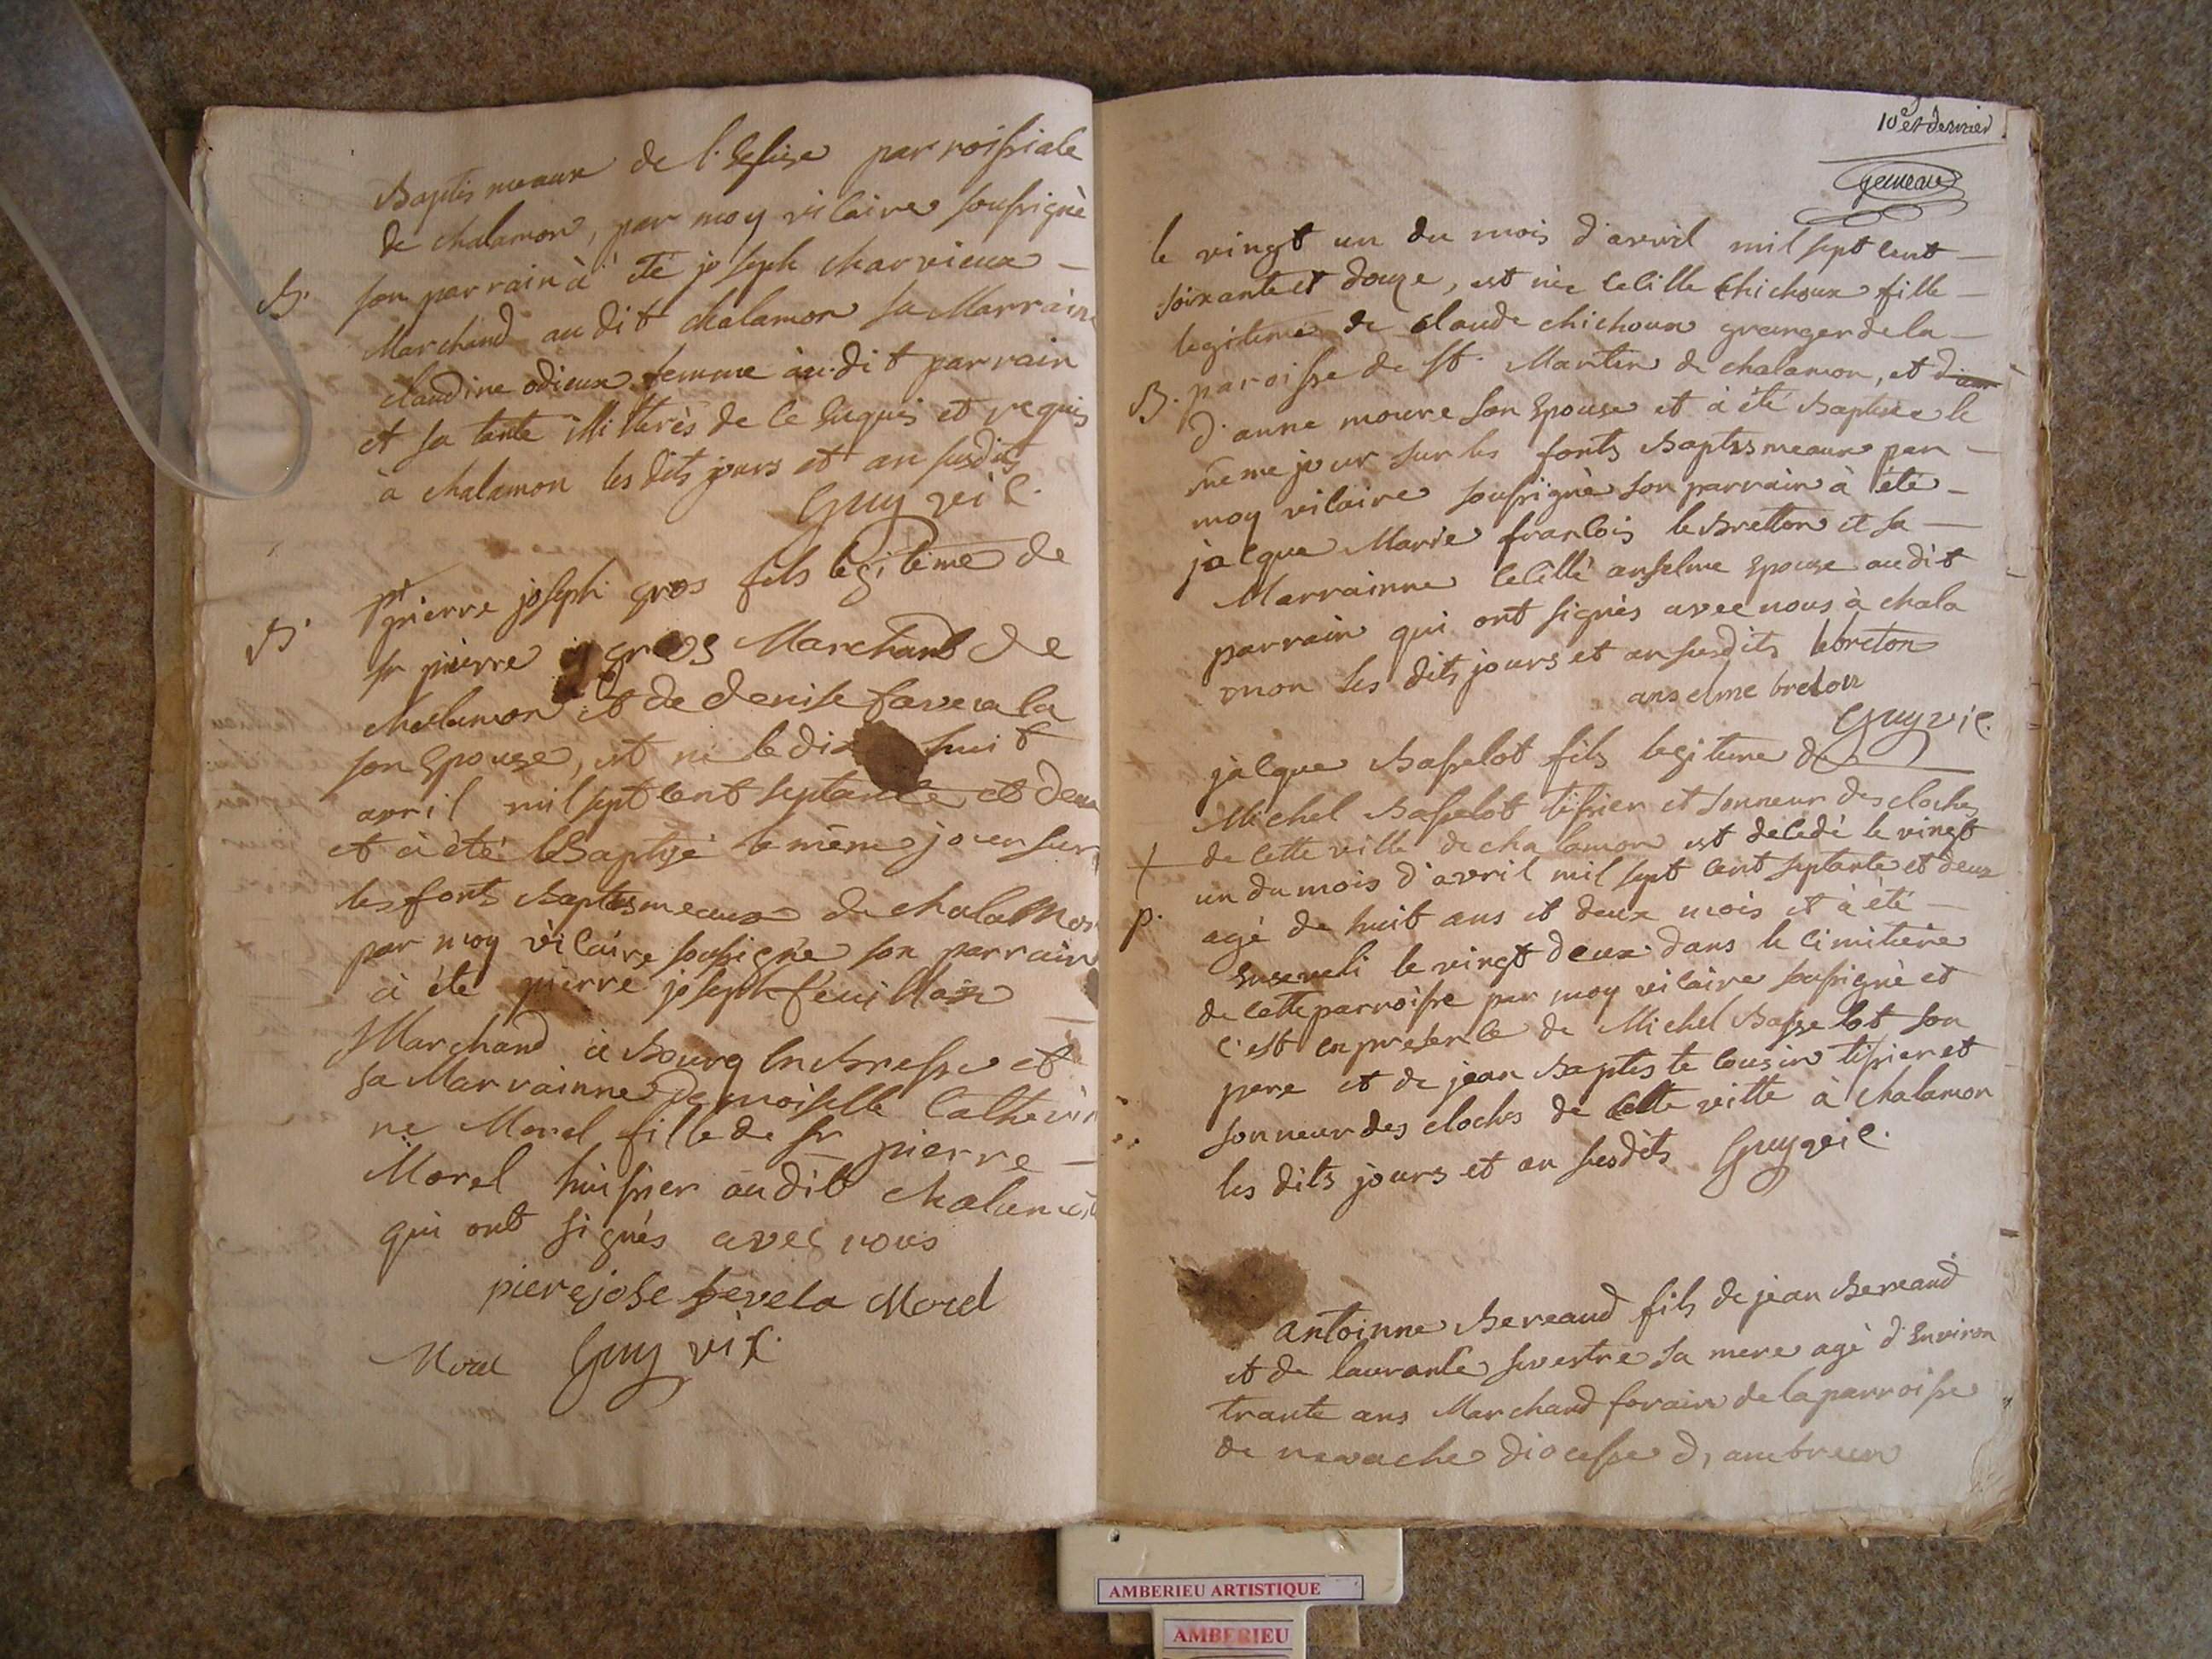 Baptismeaux de l'Eglise parroissiale
de chalamon, par moy vicaire soussigné
B. son parrain à été joseph charvieux
Marchand au dit chalamon sa Marraine
claudine odieux femme au dit parrain
et sa tante illitterés de ce enquis et requis
à chalamon les dits jours et an susdits
Guy vic.
pierre joseph gros fils legitime de
B. sr pierre gros Marchand de
chalamon et de denise favela
son Epouse, est né le dix huit
avril mil sept cent septante et deux
et à été Baptisé le même jour sur
les fonts Baptismeaux de chalamon
par moy vicaire soussigné son parrain
à été pierre joseph feuillon
Marchand à Bourg en Bresse et
sa Marrainne Demoiselle Catheri
ne Morel fille de sr pierre
Morel huissier au dit chalamon
qui ont signés avec nous
piere jose fevela Morel
Morel Guy vic.
10e et dernier
le vingt un du mois d'avril mil sept cent
soixante et douze, est née Cecille chichoux fille
legitime de claude chichoux granger de la
B. paroisse de St. Martin de chalamon, et
d'anne moure son Epouse et à été Baptisée le
même jour sur les fonts Baptismeaux par
moy vicaire soussigné son parrain à été
jacque Marie francois le Bretton et sa
Marrainne Cecille anselme Epouse au dit
parrain qui ont signés avec nous à chala
mon les dits jours et an susdits lebreton
anselme breton
Guy vic.
jacque Basselot fils legitime de
Michel Basselot tissier et sonneur des cloches
de cette ville de chalamon est decedé le vingt
un du mois d'avril mil sept cent septante et deux
p. agé de huit ans et deux mois et à été
Enseveli le vingt deux dans le cimitiere
de cette parroisse par moy vicaire soussigné et
c'est en presence de Michel Basselot son
pere et de jean Baptiste cousin tissier et
sonneur des cloches de cette ville à chalamon
les dits jours et an susdits Guy vic.
antoinne Bereaud fils de jean Bereaud
et de laurance sevestre sa mere agé d'Environ
trante ans Marchand forain de la parroisse
de nevache diocesse d'ambreun
AMBERIEU ARTISTIQUE
AMBERIEU